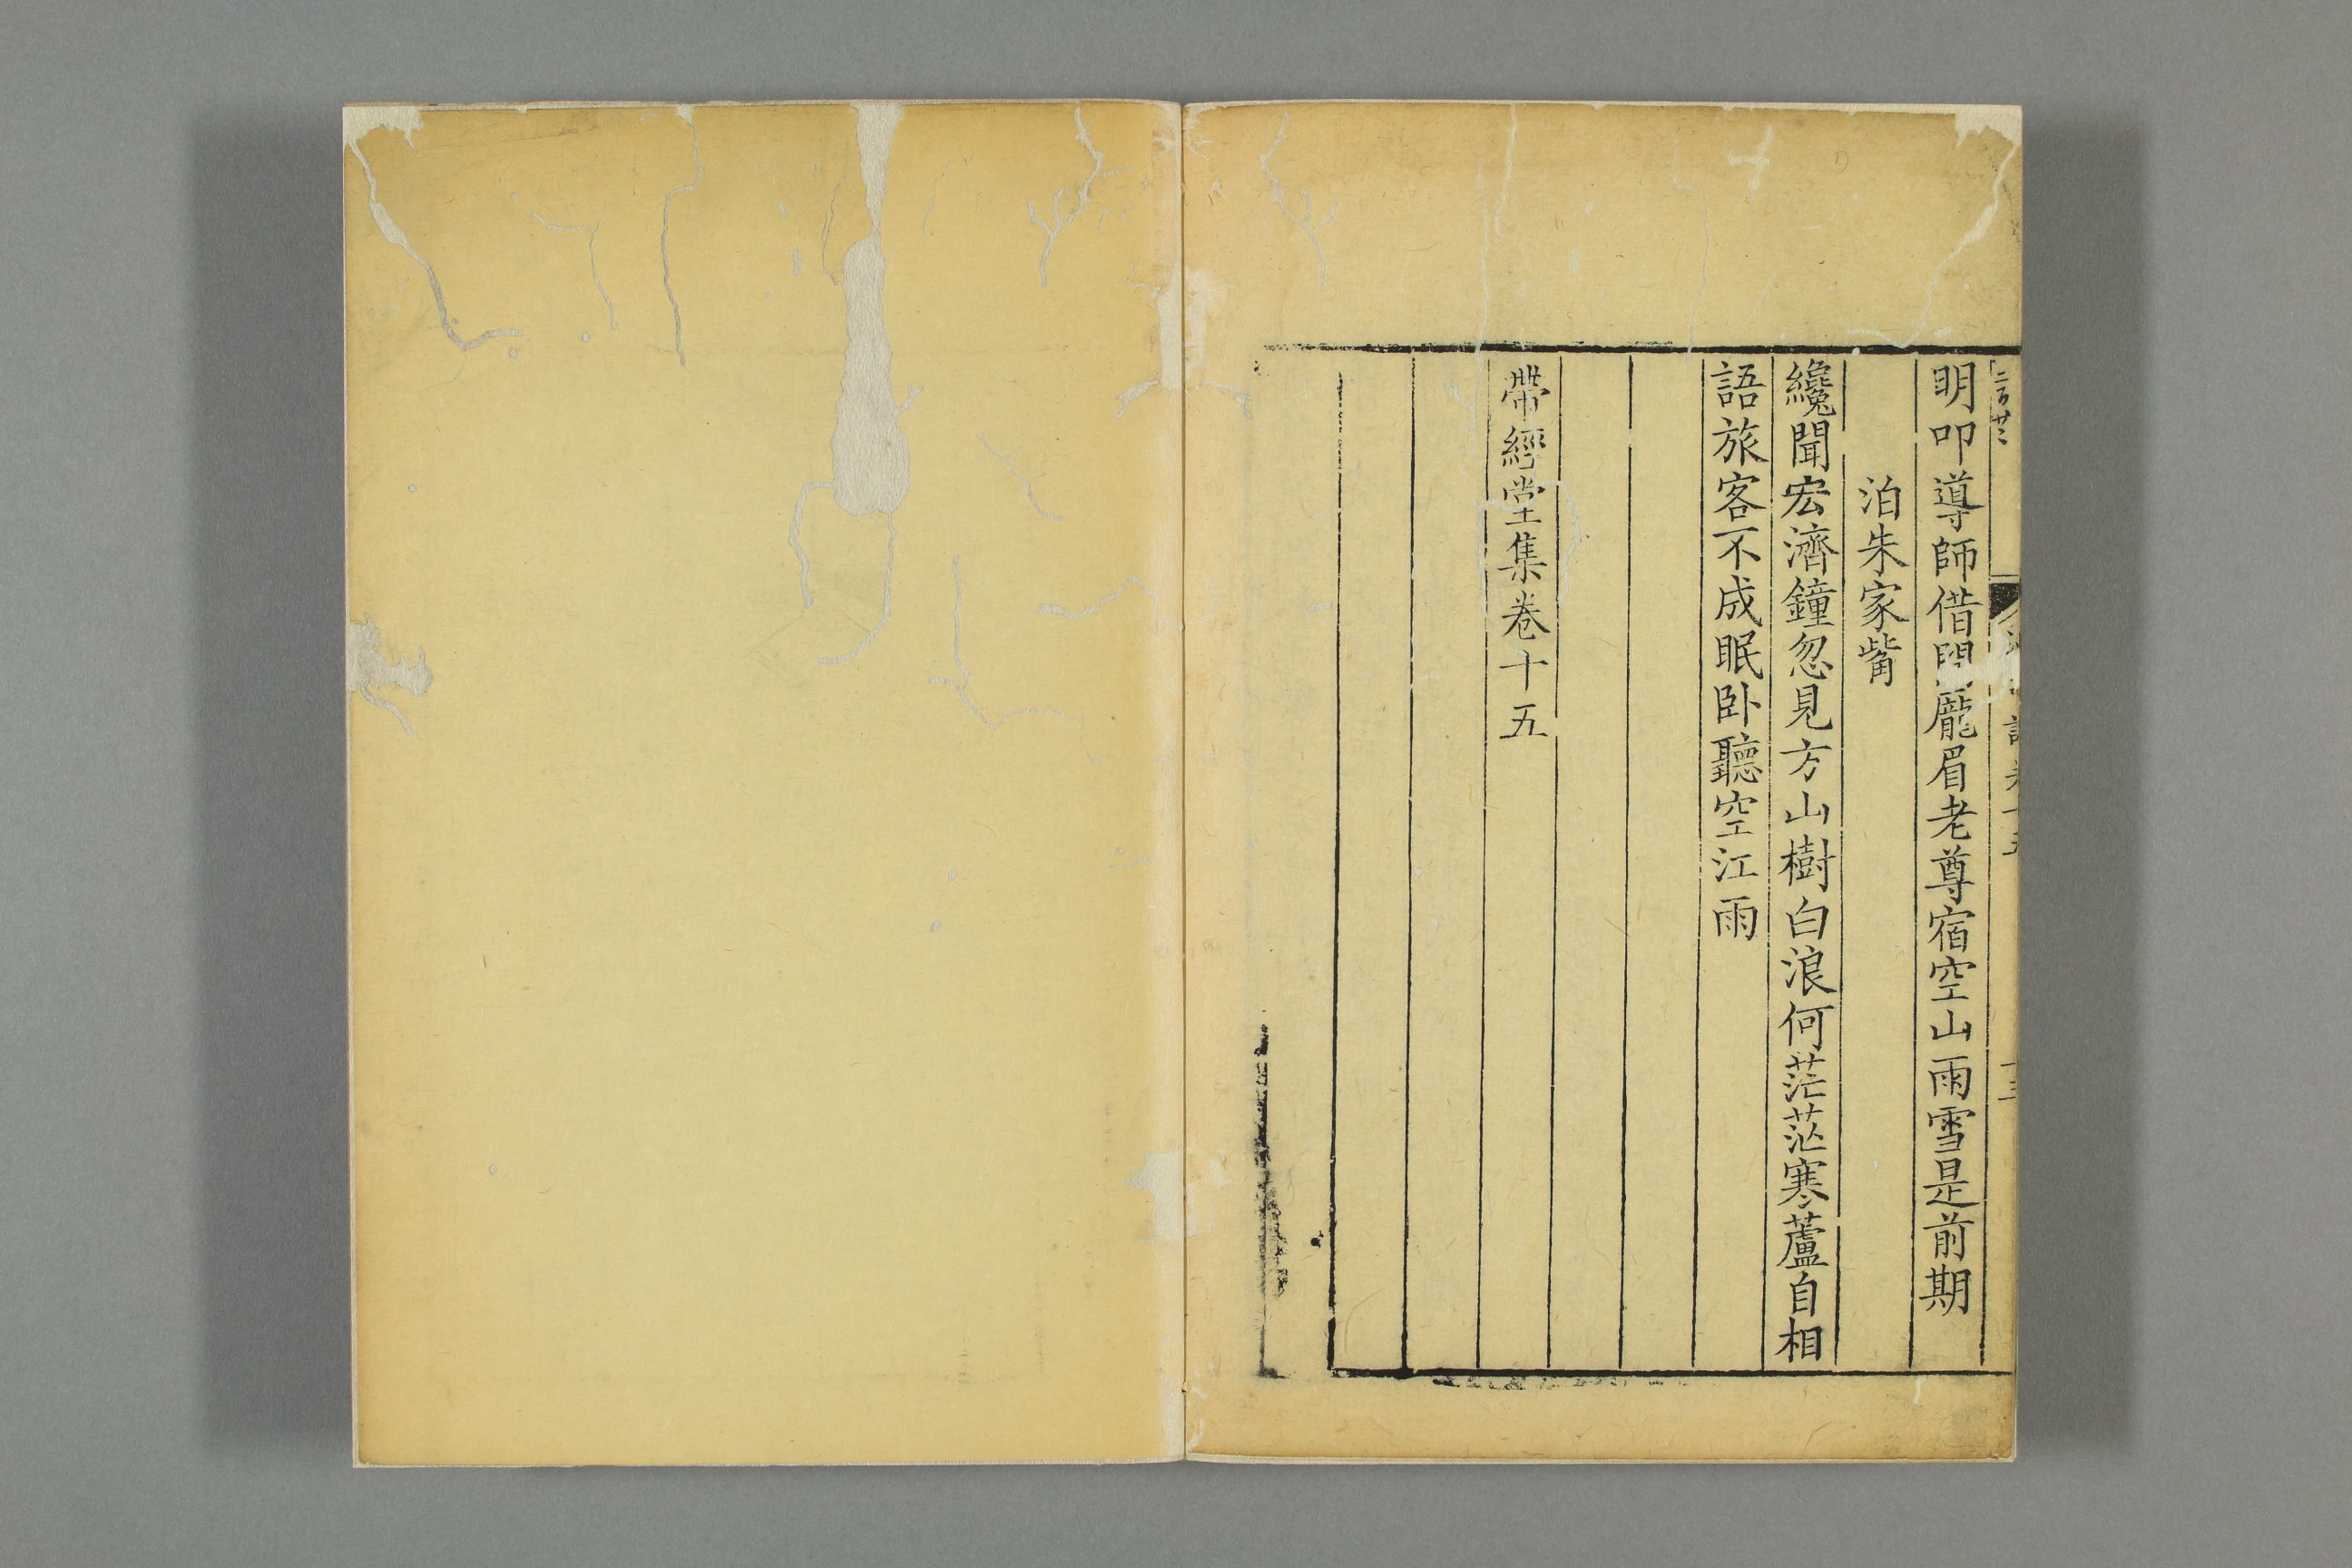 明叩導師借龐眉老尊宿空山雨雪是前期
泊朱家觜
纔聞宏濟鐘忽見方山樹白浪何茫茫寒蘆自相
語旅客不成眠卧聽空江雨
帶經堂集卷十五